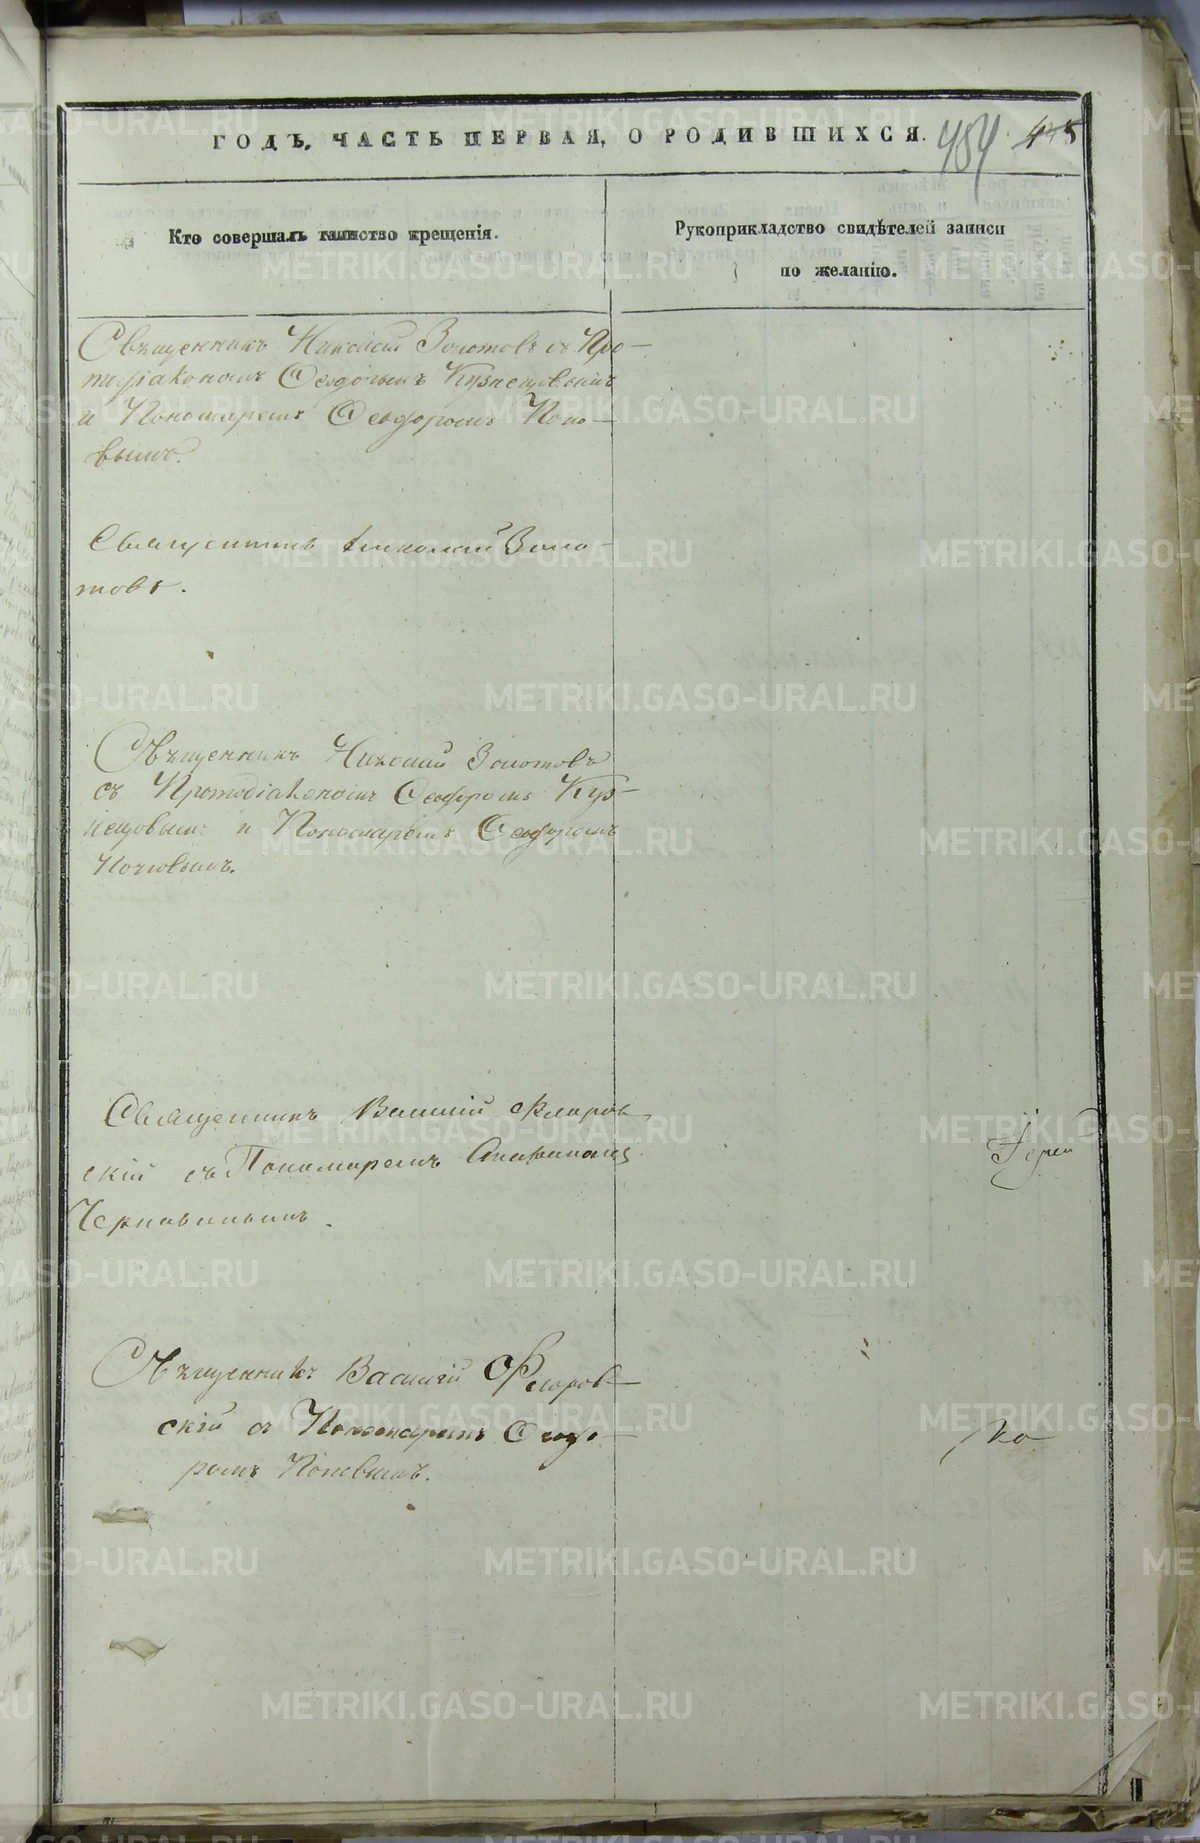 ГОДЪ, ЧАСТЬ ПЕРВАЯ, О РОДИВШИХСЯ. 484 445
Кто совершалъ таинство крещенія.
Рукоприкладство свидѣтелей записи
по желанію.
Священникъ Николай Золотовъ съ Про-
тодіакономъ Ѳеодоромъ Кузнецовымъ
и Пономаремъ Ѳеодоромъ Попо-
вымъ.
Священникъ Николай Золо-
товъ.
Священникъ Николай Золотовъ
съ Протодіакономъ Ѳеодоромъ Куз-
нецовымъ и Пономаремъ Ѳеодоромъ
Поповымъ.
Священникъ Василій Флоров-
скій съ Пономаремъ
Чернавинымъ.
Іерей
Священникъ Василій Флоров-
скій съ Пономаремъ Ѳеодо-
ромъ Поповымъ.
METRIKI.GASO-URAL.RU